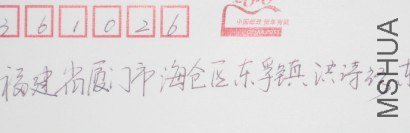 361026
中国邮政 贺年有奖
福建省厦门市海仓区东孚镇洪诗
MSHUA